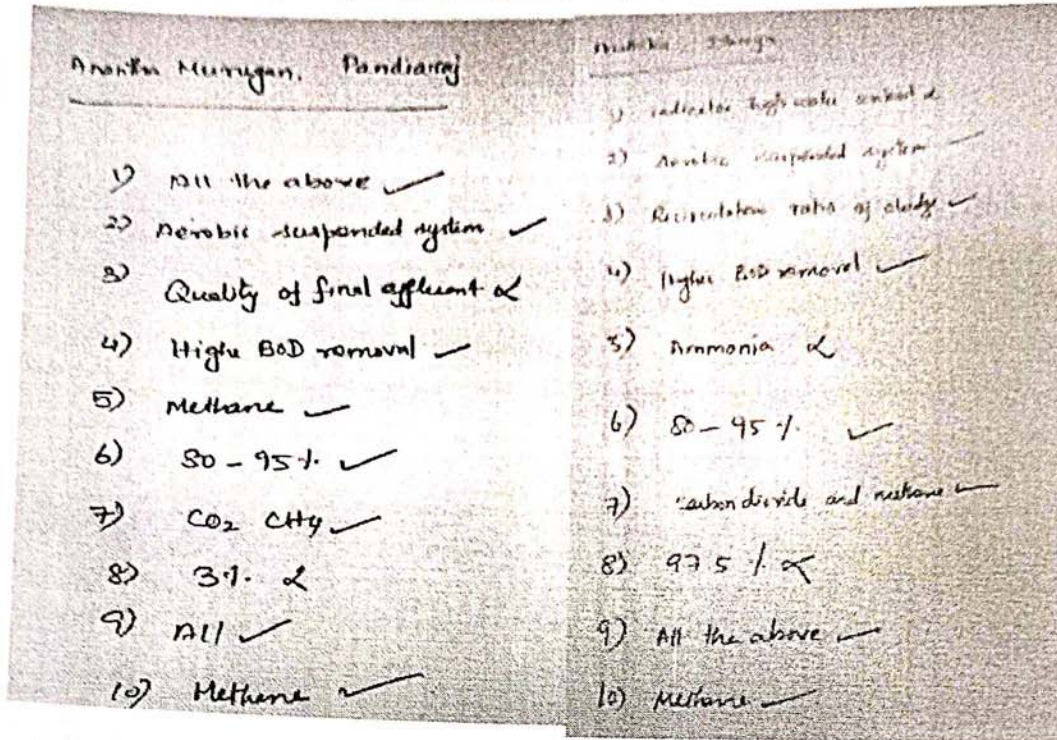 Ananthu Murugan, Pandiaraj
1) All the above
2) Aerobic suspended system
3) Quality of final affluent
4) Highe BOD romoval
5) Methane
6) 80 - 95%.
7) CO2 CH4
8) 3%.
9) All
10) Methane
1) indicator high
2) Aerobic suspended system
3) Recirculation ratio of sludge
4) Higher BOD romoval
5) Ammonia
6) 80 - 95 %.
7) carbon dioxide and methane
8) 97.5 %
9) All the above
10) Methane